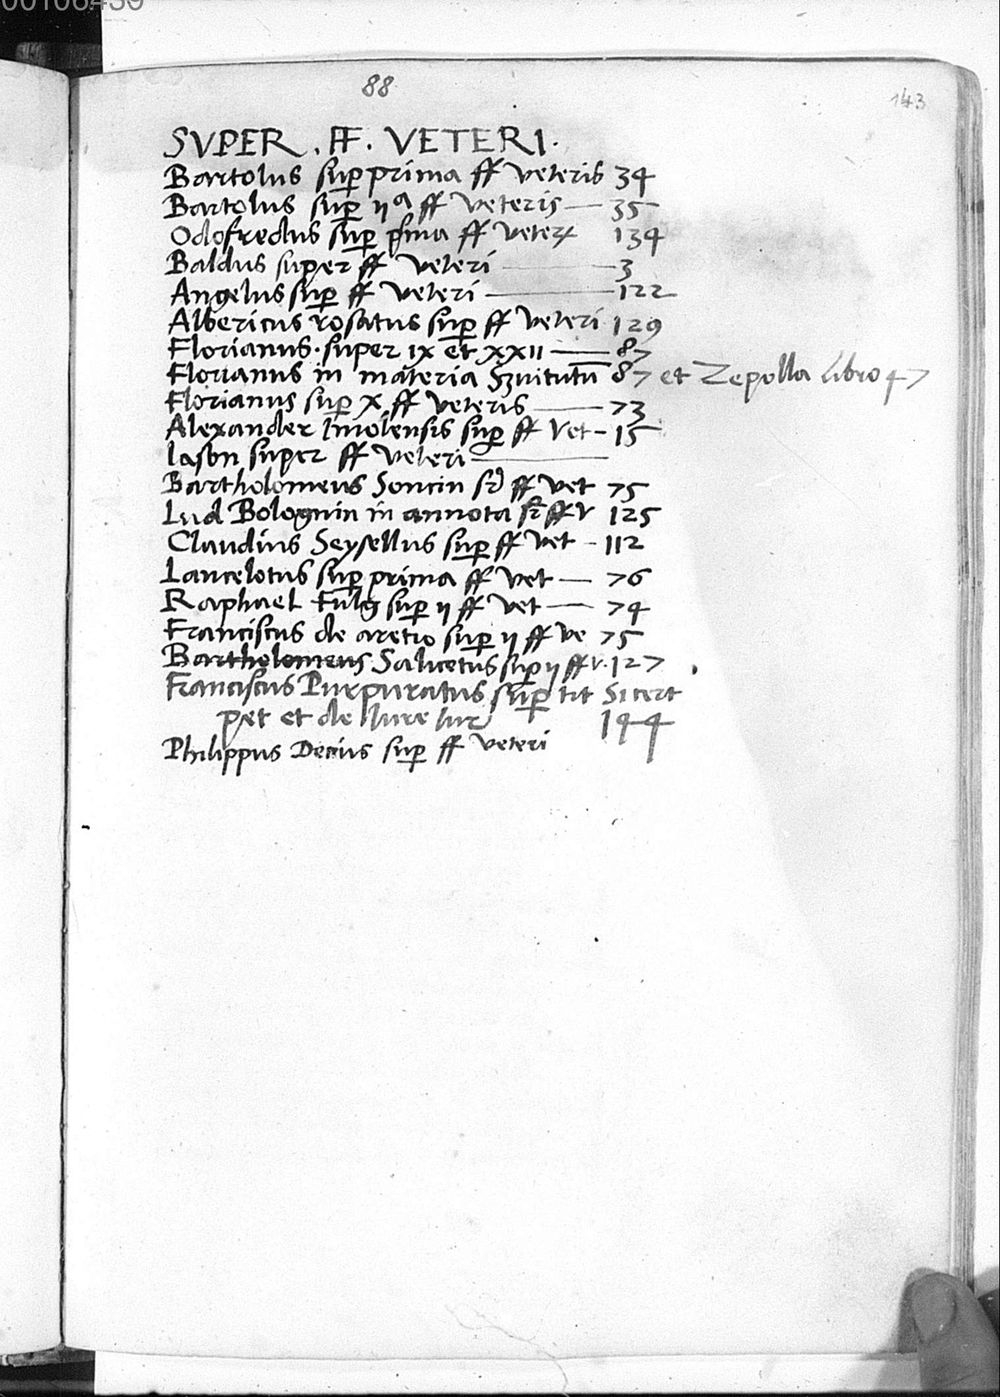 00106439
88
143
SVPER . FF . VETERI .
Bartolus sup prima ff veteris 34
Bartolus sup ijª ff veteris 35
Odofredus sup pima ff veter 134
Baldus super ff veteri 3
Angelus sup ff veteri 122
Albericus rosatus sup ff veteri 129
Florianus . super ıx et xxıı 87
Florianus in materia Szuitutū 87 et Zepolla Libro 47
Florianus sup x ff veteris 73
Alexander Imolensis sup ff Vet - 15
Iason super ff veteri
Bartholomeus Soncin sr ff vet 75
Lud Bolognin in annota sr ff v 125
Claudius Seysellus sup ff vet - 112
Lancelotus sup prima ff vet — 76
Raphael fulg sup ij ff vet — 74
Franciscus de aretio sup ij ff ve 75
Bartholomeus Salicetus sup ij ff v. 127
Franciscus Purpuratus sup tit Si cert
pet et de Iure Iur 144
Philippus Decius sup ff veteri